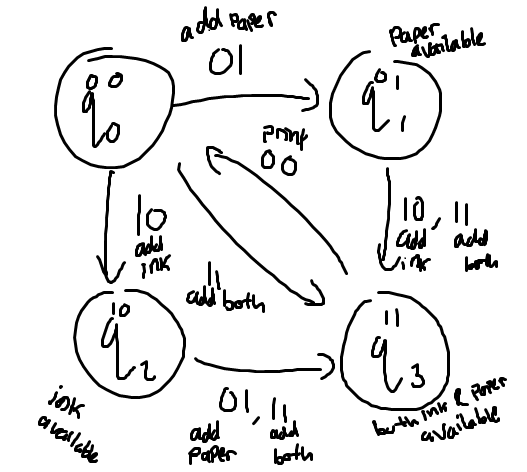 add Paper
01
Paper
available
00
q0
01
q1
print
00
10
add
ink
11
add both
10, 11
add add
ink both
10
q2
11
q3
ink
available
01, 11
add add
paper both
both ink & paper
available